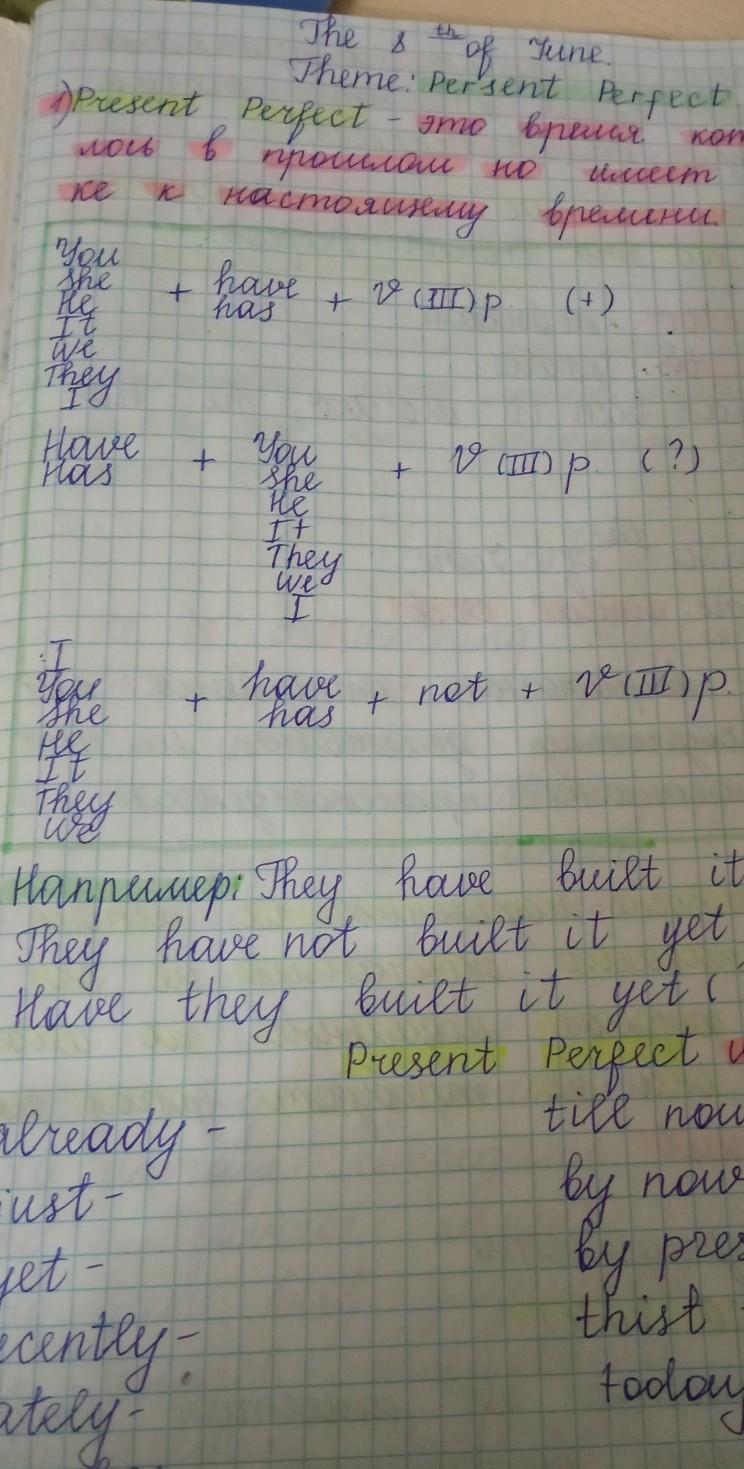 The 8th of June.
Theme: Persent Perfect
1) Present Perfect - это время кот
лось в прошлом но имеет
ке к настоящему времени.
You
She
He
It
We
They
I
+ have
has
+ V (III) p. (+)
Have
Has
+ You
She
He
It
They
We
I
+ V (III) p. (?)
I
You
She
He
It
They
We
+ have
has
+ not + V (III) p.
Например: They have built it
They have not built it yet
Have they built it yet (
Present Perfect
already - till now
just - by now
yet - by pres
ecently - thist
ately - today